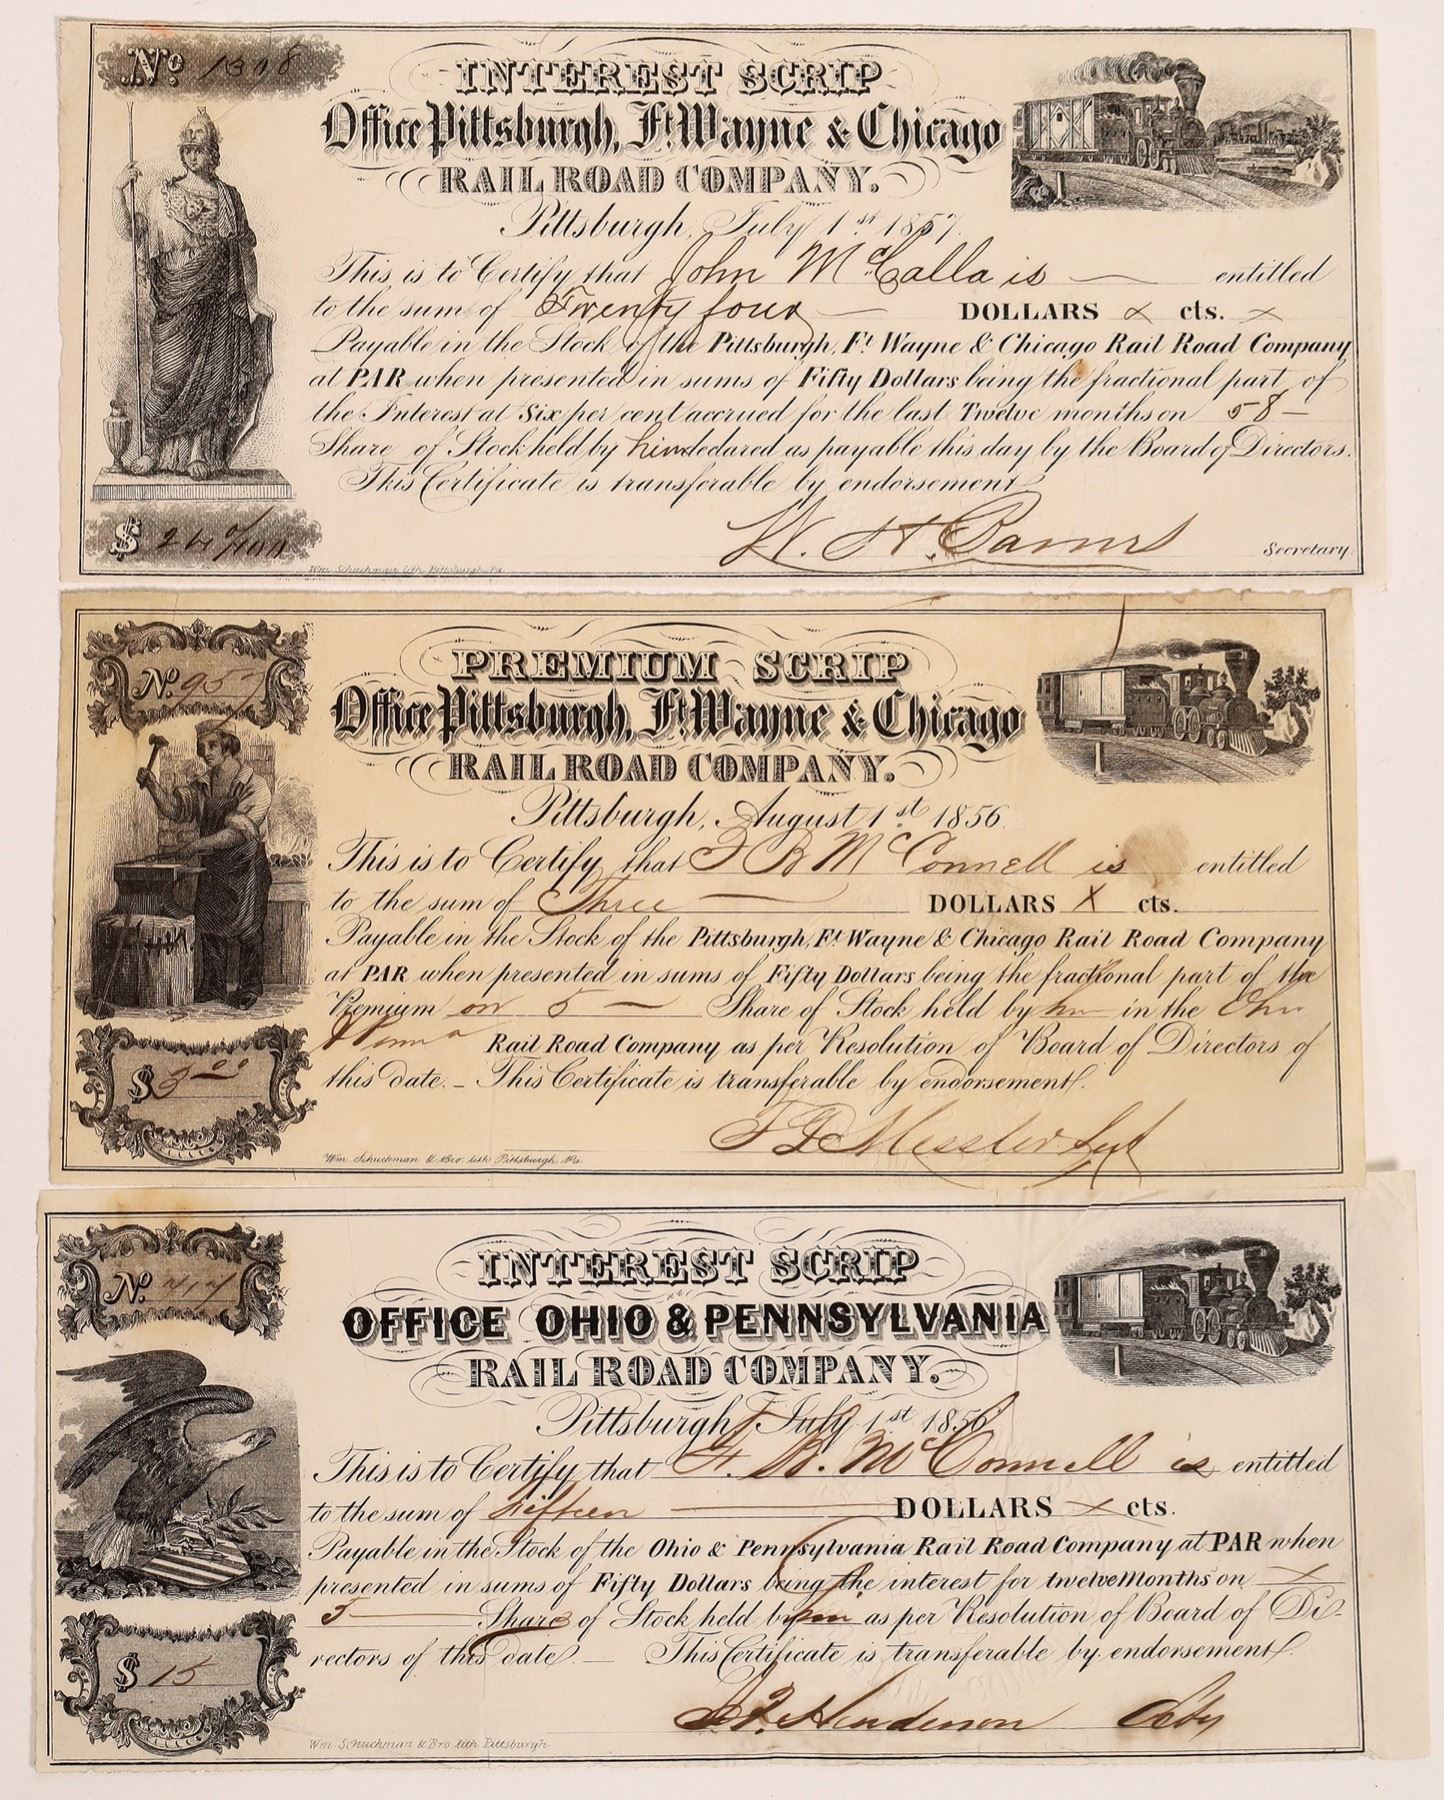 No 1308
INTEREST SCRIP
Office Pittsburgh, Ft Wayne & Chicago
RAIL ROAD COMPANY.
Pittsburgh, July 1st 1857.
This is to Certify that John McCalla is — entitled
to the sum of Twenty four — DOLLARS x cts. x
Payable in the Stock of the Pittsburgh, Ft Wayne & Chicago Rail Road Company
at PAR when presented in sums of Fifty Dollars being the fractional part of
the Interest at Six per cent accrued for the last Twelve months on 58 —
Share of Stock held by him declared as payable this day by the Board of Directors.
This Certificate is transferable by endorsement.
$ 24 0/100
W. H. Barnes Secretary.
Wm. Schuchman lith. Pittsburgh, Pa
No. 957
PREMIUM SCRIP
Office Pittsburgh, Ft Wayne & Chicago
RAIL ROAD COMPANY.
Pittsburgh, August 1st 1856.
This is to Certify that F B McConnell is entitled
to the sum of Three — DOLLARS X cts.
Payable in the Stock of the Pittsburgh, Ft Wayne & Chicago Rail Road Company
at PAR when presented in sums of Fifty Dollars being the fractional part of the
Premium on 5 — Share of Stock held by him in the Ohio
& Penna Rail Road Company as per Resolution of Board of Directors of
this date. – This Certificate is transferable by endorsement.
$ 3 00
Messler
Wm. Schuchman & Bro. lith. Pittsburgh, Pa.
No. 717
INTEREST SCRIP
OFFICE OHIO & PENNSYLVANIA
RAIL ROAD COMPANY.
Pittsburgh, July 1st 1856
This is to Certify that F. B. McConnell is entitled
to the sum of Fifteen — DOLLARS x cts.
Payable in the Stock of the Ohio & Pennsylvania Rail Road Company at PAR when
presented in sums of Fifty Dollars being the interest for twelve Months on x
5 — Shares of Stock held by him as per Resolution of Board of Di-
rectors of this date. – This Certificate is transferable by endorsement.
$ 15
Henderson
Wm Schuchman & Bro. lith Pittsburgh